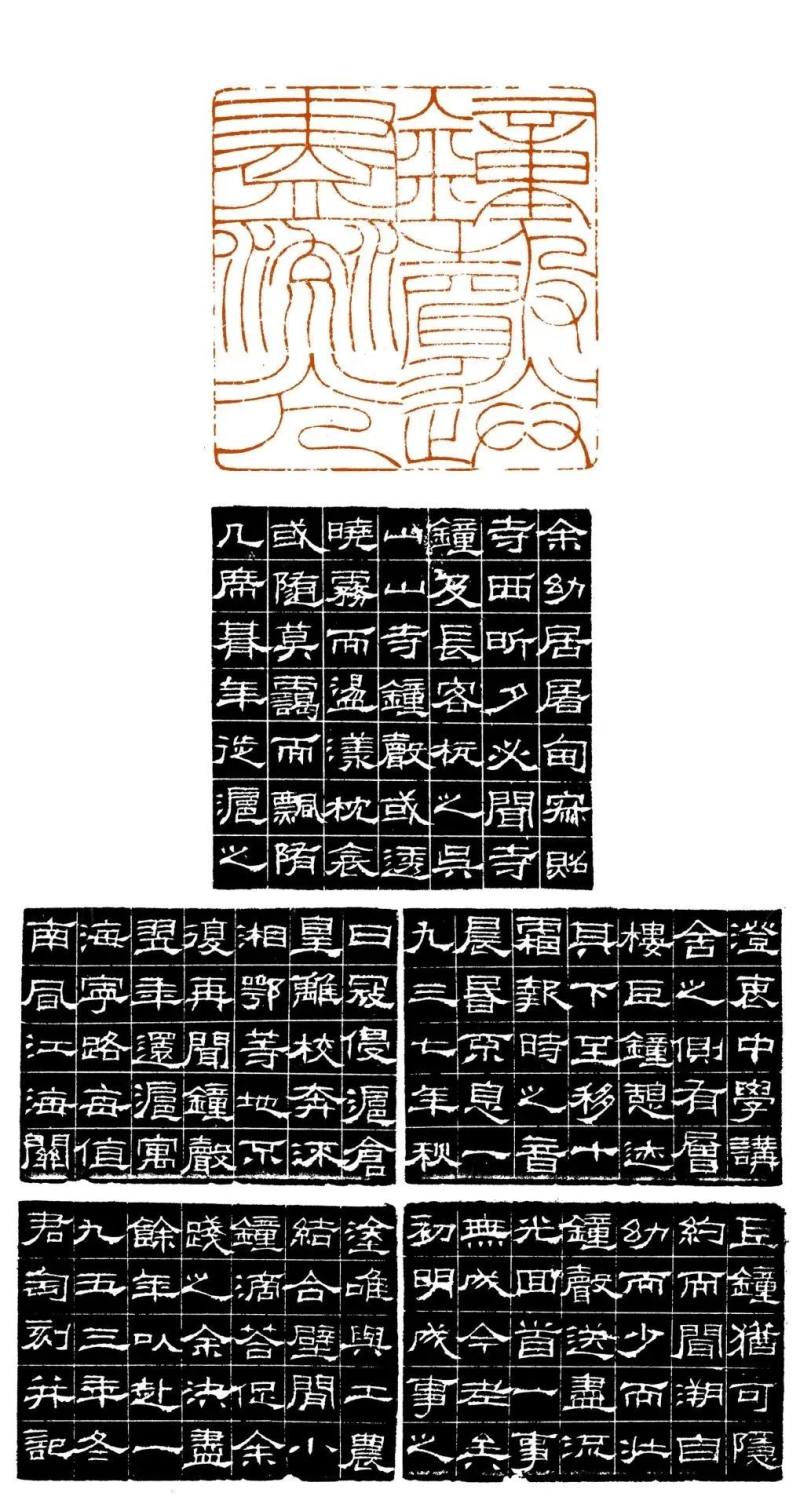 鐘聲送盡流光
余幼居屠甸寂照
寺西昕夕必聞寺
鐘及長客杭之吳
山山寺鐘聲或透
曉霧而盪漾枕衾
或随莫靄而飄陏
几席朞年徙滬之
澄衷中學講
舍之側有層
樓巨鐘憩迹
其下至移十
霜報時之音
晨昏不息一
九三七年秋
日寇侵滬倉
皇離校奔
湘鄂等地不
復再聞鐘聲
翌年還滬寓
海寧路每值
南風江海關
巨鐘猶可隱
約而聞溯自
幼而少而壯
鐘聲送盡流
光回首一事
無成今老矣
初明成事之
塗唯與工農
結合壁間小
鐘滴答促余
踐之余決盡
餘年以赴一
九五三年冬
君匋刻并記